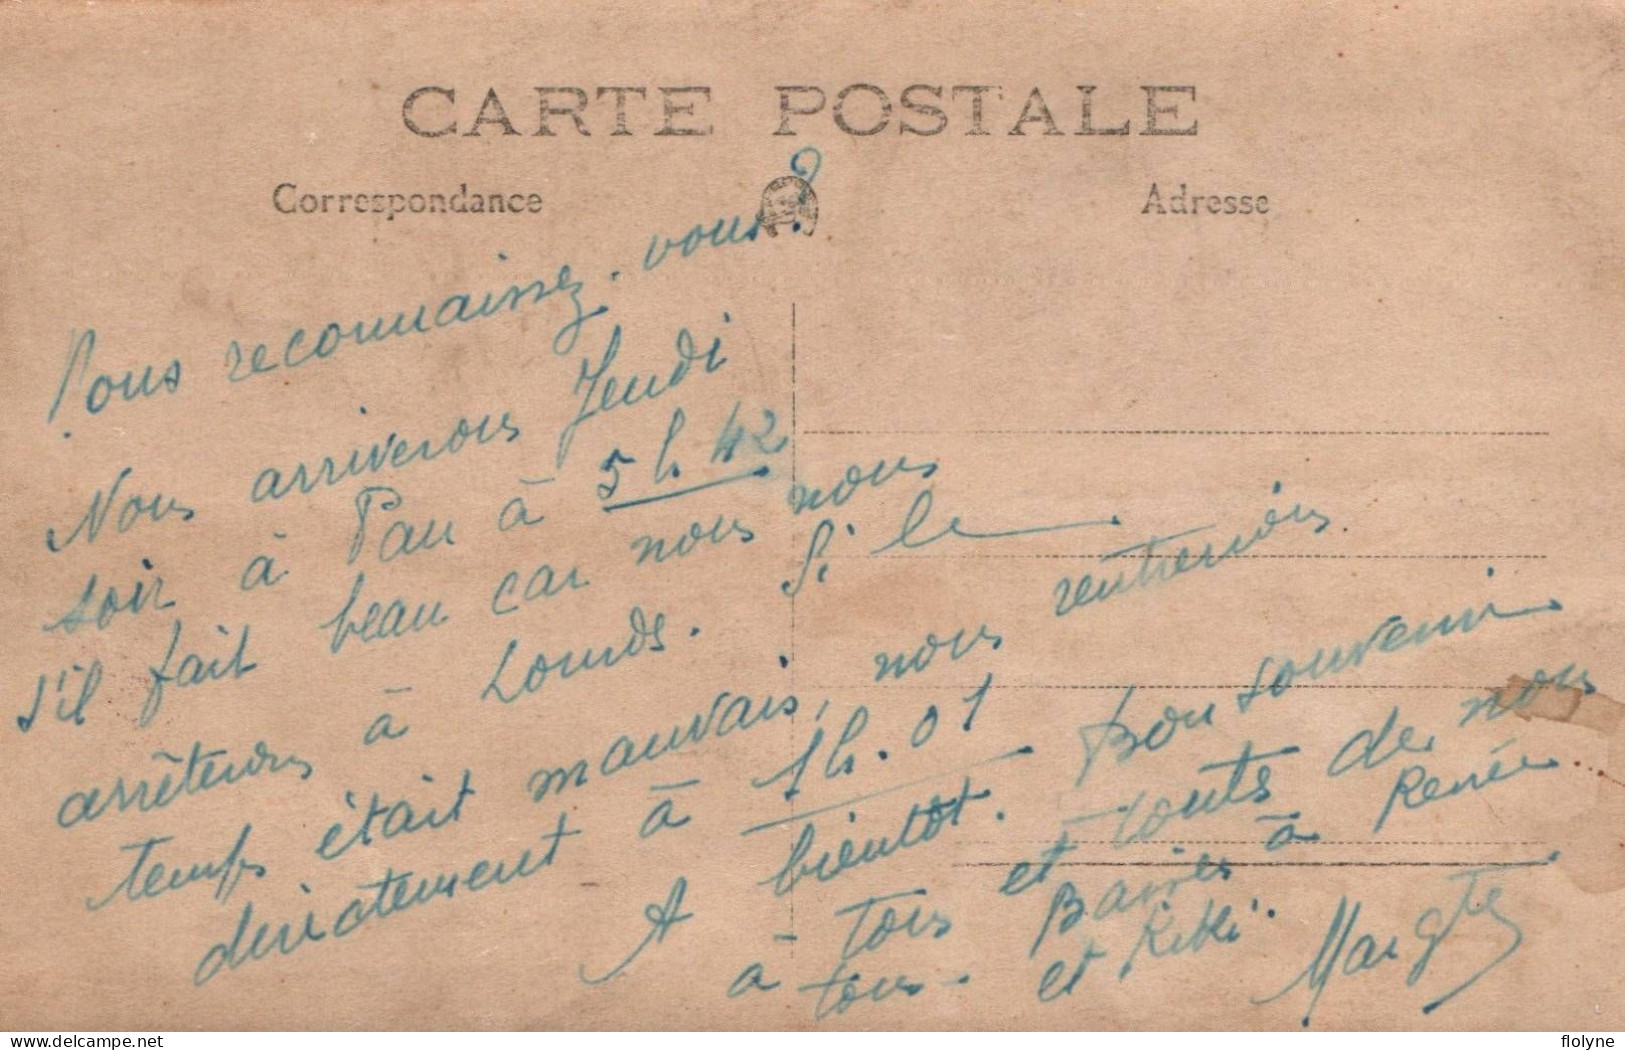 CARTE POSTALE
Correspondance
Adresse
Nous reconnaissez-vous?
Nous arriverons Jeudi
soir à Pau à 5 h. 42
s'il fait beau car nous nous
arrêterons à Lourds. Si le
temps était mauvais, nous rentrerions
directement à 1h.01
A bientôt. Bon souvenir
à tous et de nous
tous. Baisers à Renée
et Kiki. Margte
delcampe.net
flolyne